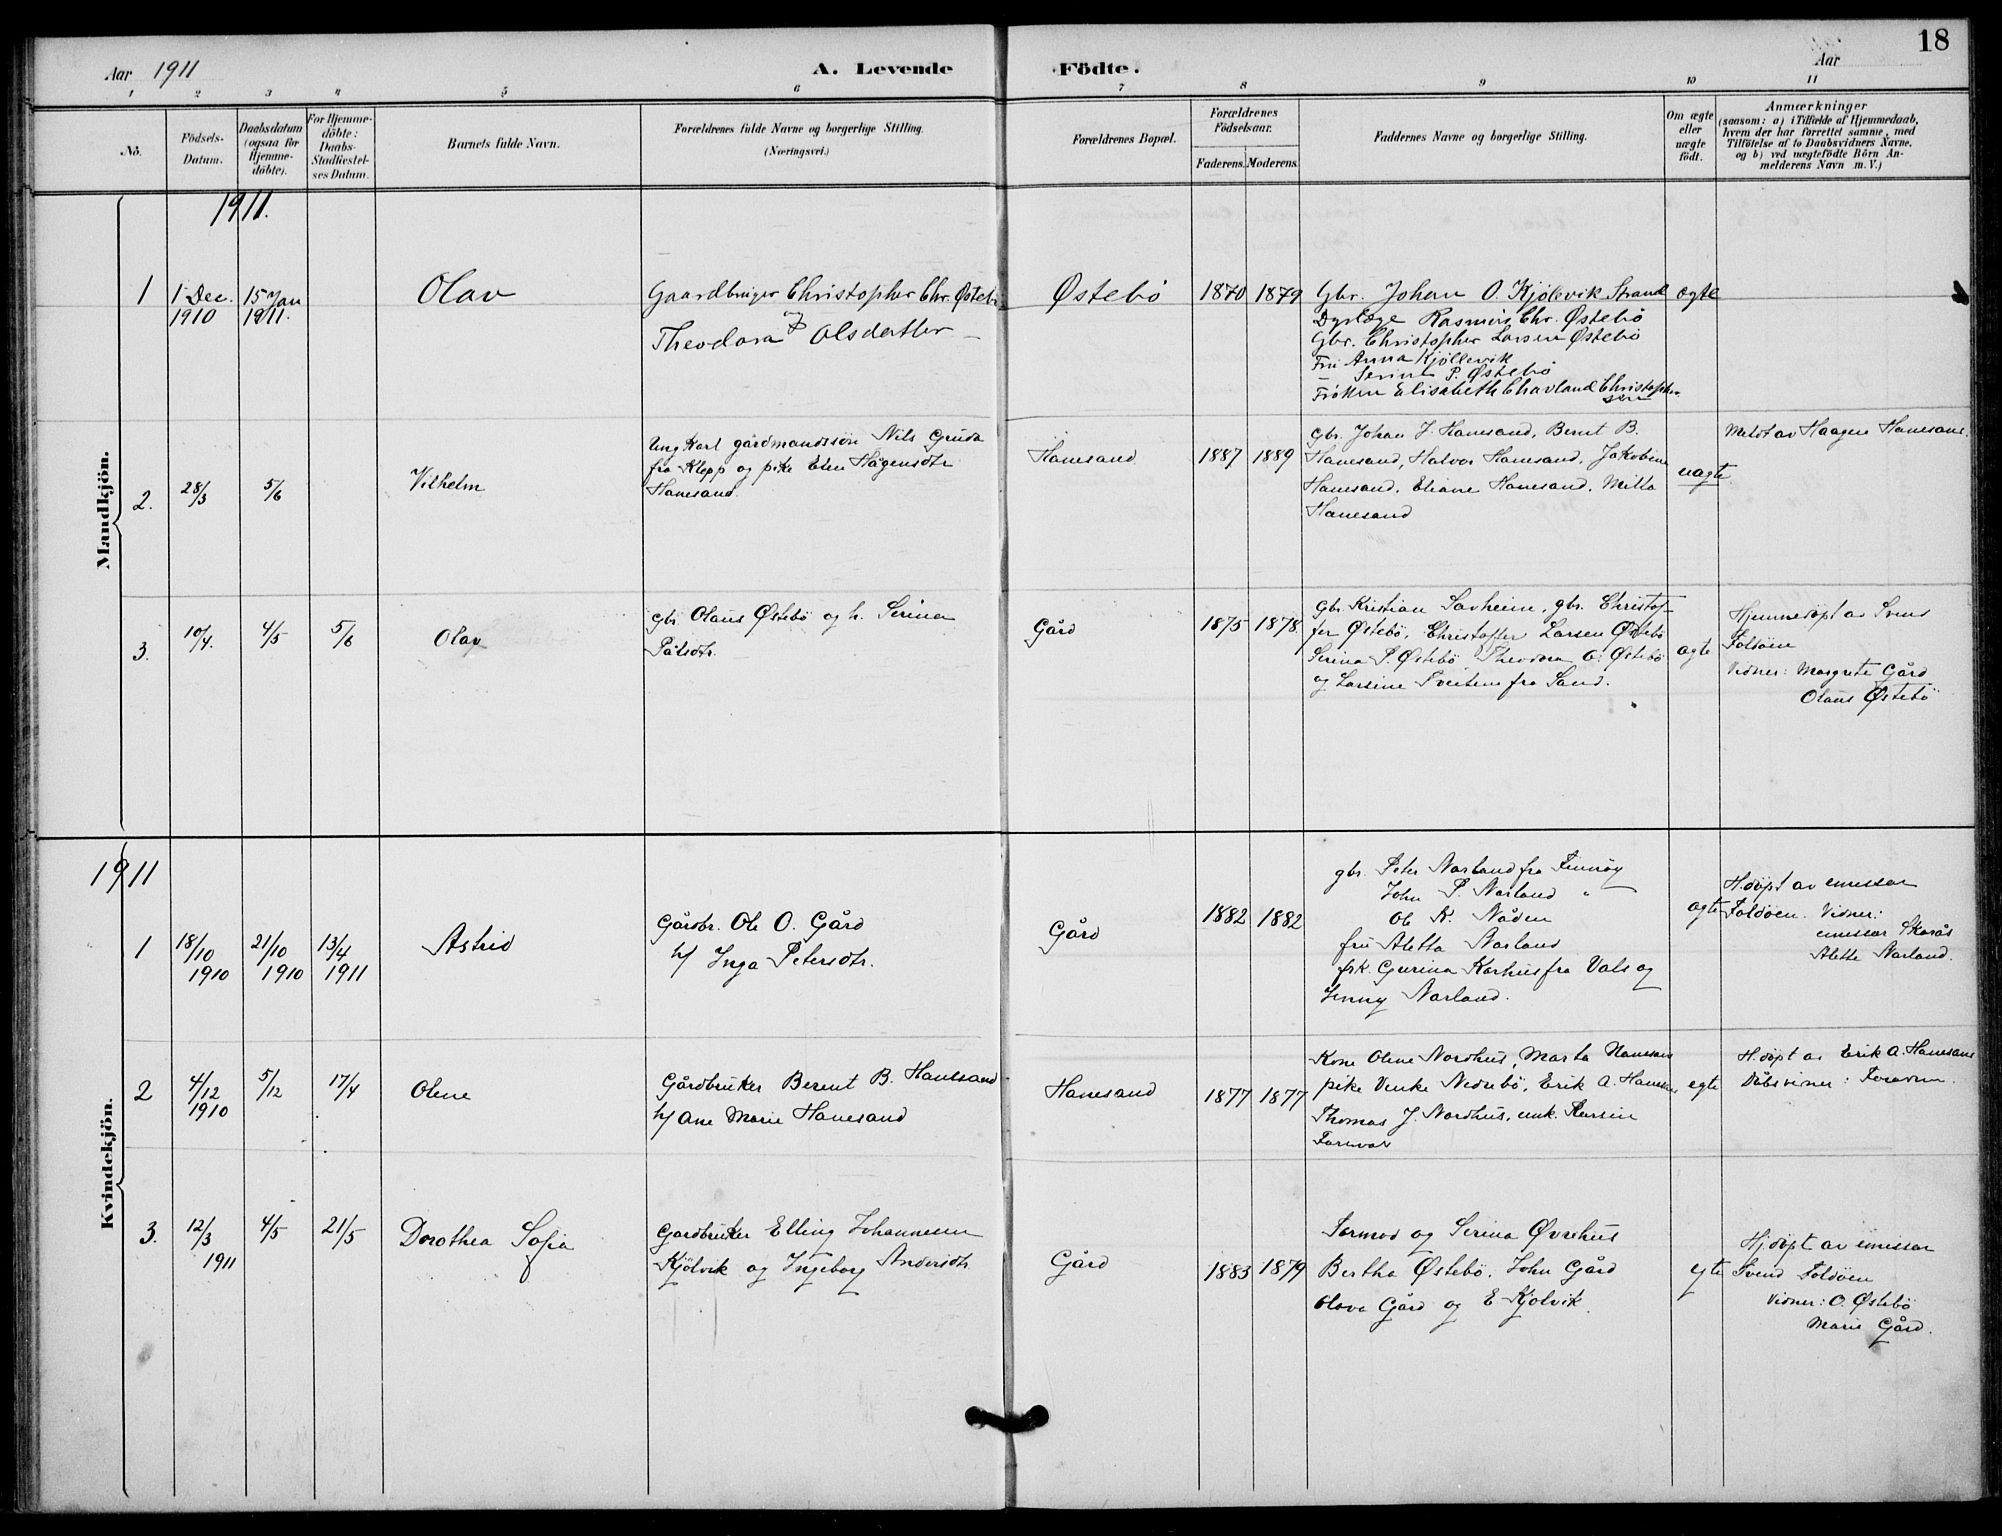 18
Aar 1911
A. Levende
Födte.
Aar
1
2
3
4
5
6
7
8
9
10
11
No.
Födsels-
Datum.
Daabsdatum
(ogsaa for
Hjemme-
döbte).
For Hjemme-
döbte:
Daabs-
Stadfæstel-
ses Datum.
Barnets fulde Navn.
Forældrenes fulde Navne og borgerlige Stilling.
(Næringsvei.)
Forældrenes Bopæl.
Forældrenes
Födselsaar.
Faderens.
Moderens.
Faddernes Navne og borgerlige Stilling.
Om ægte
eller
uægte
født.
Anmærkninger
(saasom: a) i Tilfælde af Hjemmedaab,
hvem der har forrettet samme, med
Tilföielse af to Daabsvidners Navne,
og b) ved uægtefödte Börn An-
melderens Navn m. V.)
Mandkjön.
1911.
1
1 Dec.
1910
15 Jan
1911.
Olav
Gaardbruger Christopher Chr. Østebö
Theodora Olsdatter —
Østebö
1870
1879
Gbr. Johan O. Kjölevik Strand
Dyrlæge Rasmus Chr. Østebö
Gbr. Christopher Larsen Østebö
Fru Anna Kjöllevik
— Serine P. Østebö
Fröken Elisabeth Christopher-
sen
ægte
2.
28/3
5/6
Vilhelm
Ungkarl gårdmandssön Nils Gruda
fra Klepp og pike Elen Hågensdtr
Hanesand.
Hanesand
1887
1889
Gbr. Johan J. Hanesand, Bernt B.
Hanesand, Halvor Hanesand, Jakobine
Hanesand, Eliane Hanesand, Metta
Hanesand
uægte
Meldt av Haagen Hanesand.
3.
10/4.
4/5
5/6
Olav
gbr. Olaus Østebö og h. Serina
Pålsdtr.
Gård
1875
1878
Gbr. Kristian Savheim, gbr. Christof-
fer Østebö, Christoffer Larsen Østebö
Serina P. Østebö, Theodora O. Østebö
og Larsine Tveiten fra Sand.
ægte
Hjemmedöpt av Svend
Foldöen
Vidner: Margrete Gård
Olaus Østebö
Kvindekjön.
1911
1
18/10
1910
21/10
1910
13/4
1911
Astrid
Gårdbr. Ole O. Gård
h/ Inga Petersdtr.
Gård
1882
1882
gbr. Peter Narland fra Finnöy
John P. Narland "
Ole K. Nåden
fru Aletta Narland
frk. Gurina Karhus fra Vats og
Jenny Narland.
ægte
H.döpt av emissær
Foldöen. Vidner:
emissær Skarås
Alette Narland.
2
4/12
1910
5/12
17/4
Olene
Gårdbruker Berent B. Hanesand
h/ Ane Marie Hanesand
Hanesand
1877
1877
Kone Olene Nordhus, Marta Hanesand
pike Venke Nedrebö, Erik A. Hanesand
Thomas J. Nordhus, enk.
egte
H. döpt av Erik A. Hanesand
Dåbsvidner:
3.
12/3
1911
4/5
21/5
Dorothea Sofia
Gardbruker Elling Johannesen
Kjölvik og Ingeborg Andersdtr.
Gård
1883
1879
Tormod og Serina Øvrehus
Bertha Østebö, John Gård
Olava Gård og E Kjölvik.
egte
Hjdöpt av emissær
Svend Foldöen
Vidner: O. Østebö
Marie Gård.